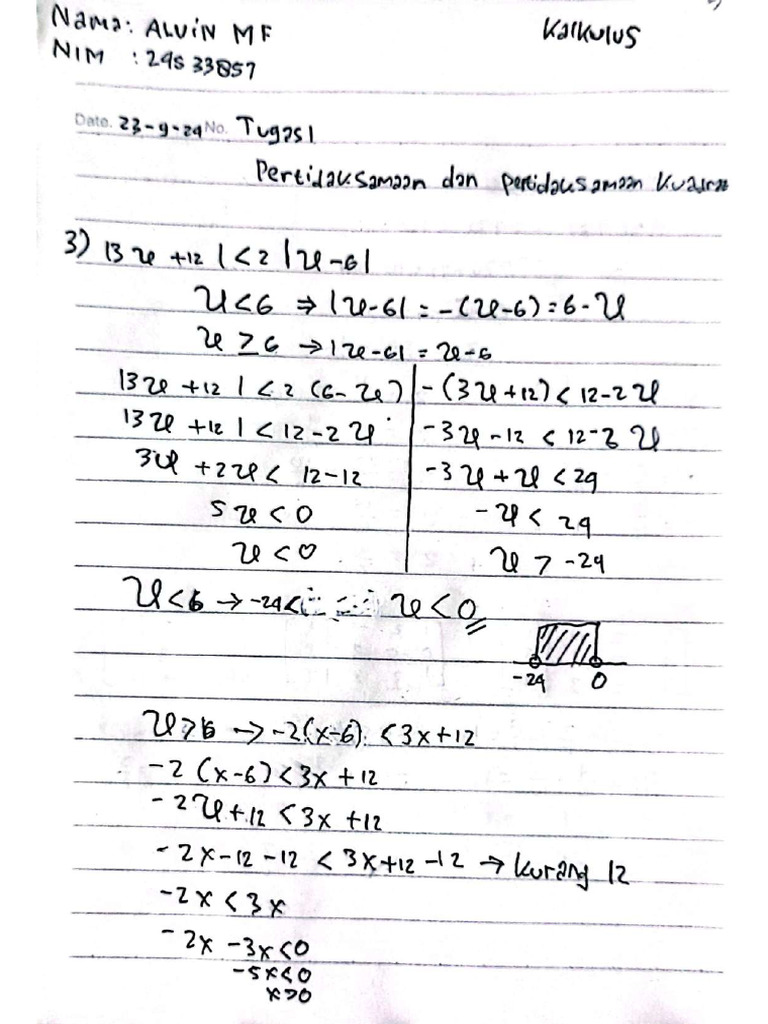 Nama: ALVIN MF
Kalkulus
NIM : 24533857
Date. 23-9-24 No. Tugas 1
Pertidaksamaan dan pertidaksamaan Kuadrat
3) |3x +12 | < 2 |x-6|
x<6 ⇒ |x-6| = -(x-6) = 6-x
x ≥ 6 → |x-6| = x-6
|3x +12 | < 2 (6-x) | -(3x+12) < 12-2x
|3x +12 | < 12-2x | -3x -12 < 12-2x
3x +2x < 12-12 | -3x + x < 24
5x < 0 | -x < 24
x < 0 | x > -24
x<6 → -24 < x < 0
-24 0
x>6 → -2(x-6) < 3x+12
-2 (x-6) < 3x +12
-2x +12 < 3x +12
-2x-12 -12 < 3x+12 -12 → kurang 12
-2x < 3x
-2x -3x<0
-5x<0
x>0